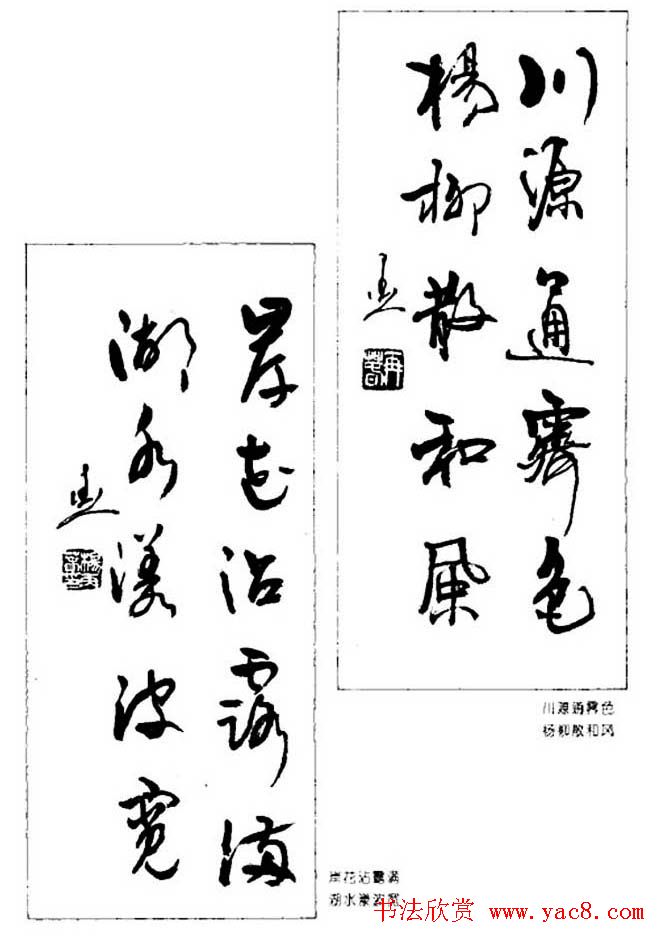 川源通霁色
杨柳散和风
川源通霁色
杨柳散和风
岸花沾露满
湖水漾波宽
岸花沾露满
湖水漾波宽
书法欣赏 www.yac8.com